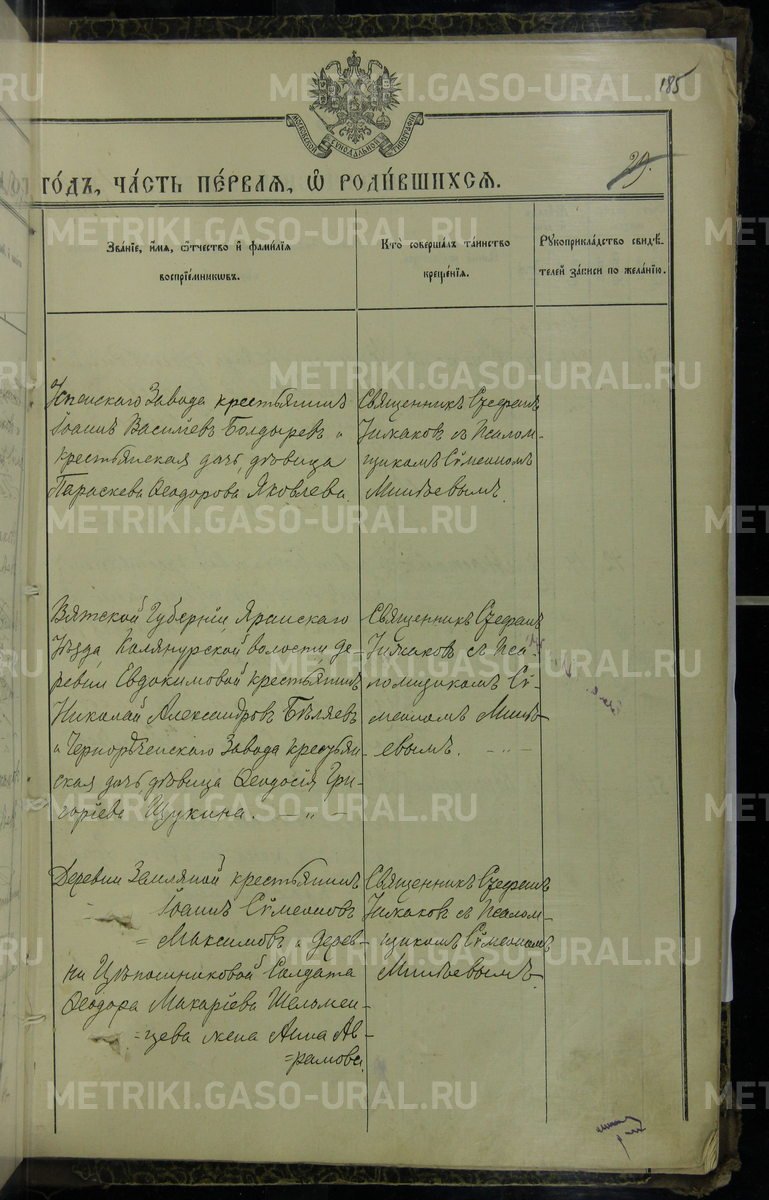 185
29.
МОСКОВСКОЙ СѴНОДАЛЬНОЙ ТИПОГРАФІИ
го́дъ, ча́сть пе́рваѧ, ѡ҆ роди́вшихсѧ.
Зва́нїе, и҆́мѧ, ѻ҆́тчество и҆ фами́лїѧ
воспрїе́мникѡвъ.
Кто̀ соверша́лъ та́инство
креще́нїѧ.
Рꙋкоприкла́дство свидѣ́-
телей за́писи по жела́нїю.
Успенскаго Завода крестьянинъ
Іоаннъ Василіевъ Болдыревъ и
крестьянская дочь, дѣвица
Параскева Ѳеодорова Яковлева.
Священникъ Стефанъ
съ Псалом-
щикомъ Сѵмеономъ
Вятской Губерніи Яранскаго
Уѣзда Калянурской волости де-
ревни Евдокимовой крестьянинъ
Николай Александровъ Бѣляевъ
и Чернорѣченскаго Завода крестьян-
ская дочь, дѣвица Ѳеодосія Гри-
горіева Щукина. — „ —
Священникъ Стефанъ
съ Пса-
ломщикомъ Сѵ-
меономъ
евымъ. — „ —
Деревни Земляной крестьянинъ
Іоаннъ Сѵмеоновъ
Максимовъ и дерев-
ни Цѣпошниковой Солдата
Ѳеодора Макаріева Шеломен-
цева жена Анна Ав-
рамова.
Священникъ Стефанъ
съ Псалом-
щикомъ Сѵмеономъ
METRIKI.GASO-URAL.RU